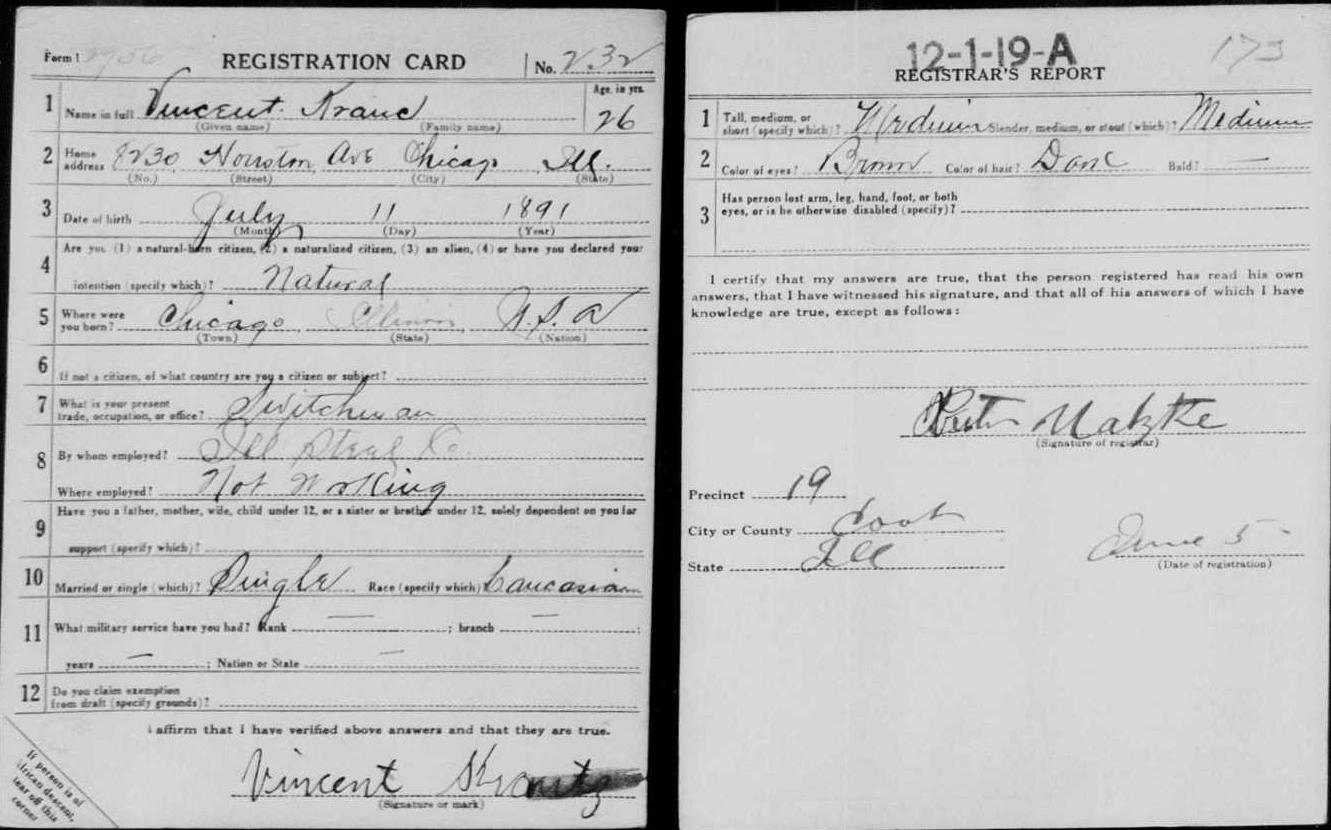 Form 1 2956 REGISTRATION CARD No. 232
1 Name in full Vincent Age, in yrs. 26
(Given name) (Family name)
2 Home address 8230 Houston Ave Chicago Ill.
(No.) (Street) (City) (State)
3 Date of birth July 11 1891
(Month) (Day) (Year)
4 Are you (1) a natural-born citizen, (2) a naturalized citizen, (3) an alien, (4) or have you declared your
intention (specify which)? Natural
5 Where were you born? Chicago Illinois U.S.A
(Town) (State) (Nation)
6 If not a citizen, of what country are you a citizen or subject?
7 What is your present trade, occupation, or office? Switchman
8 By whom employed? Ill Steel Co
Where employed? Not Working
9 Have you a father, mother, wife, child under 12, or a sister or brother under 12, solely dependent on you for
support (specify which)?
10 Married or single (which)? Single Race (specify which) Caucasian
11 What military service have you had? Rank — ; branch — ;
years — ; Nation or State —
12 Do you claim exemption from draft (specify grounds)?
I affirm that I have verified above answers and that they are true.
Vincent
(Signature or mark)
If person is of
African descent,
tear off this
corner
12-1-19-A 173
REGISTRAR'S REPORT
1 Tall, medium, or short (specify which)? Medium Slender, medium, or stout (which)? Medium
2 Color of eyes? Brown Color of hair? Dark Bald? —
3 Has person lost arm, leg, hand, foot, or both
eyes, or is he otherwise disabled (specify)?
I certify that my answers are true, that the person registered has read his own
answers, that I have witnessed his signature, and that all of his answers of which I have
knowledge are true, except as follows:
Matzke
(Signature of registrar)
Precinct 19
City or County Cook
State Ill
June 5 -
(Date of registration)